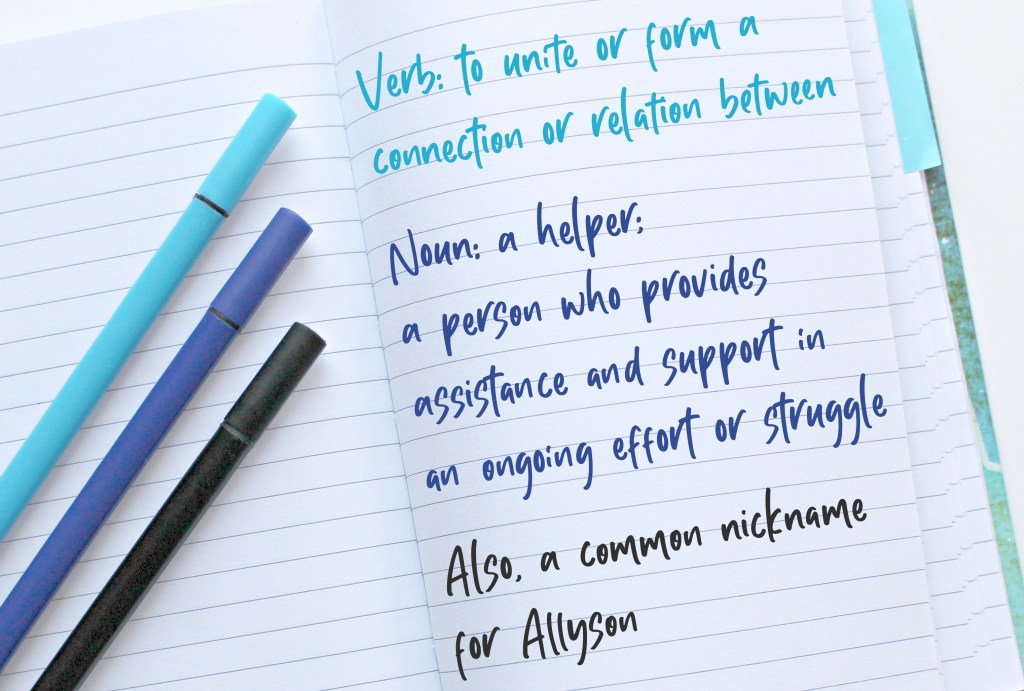 Verb: to unite or form a
connection or relation between
Noun: a helper;
a person who provides
assistance and support in
an ongoing effort or struggle
Also, a common nickname
for Allyson